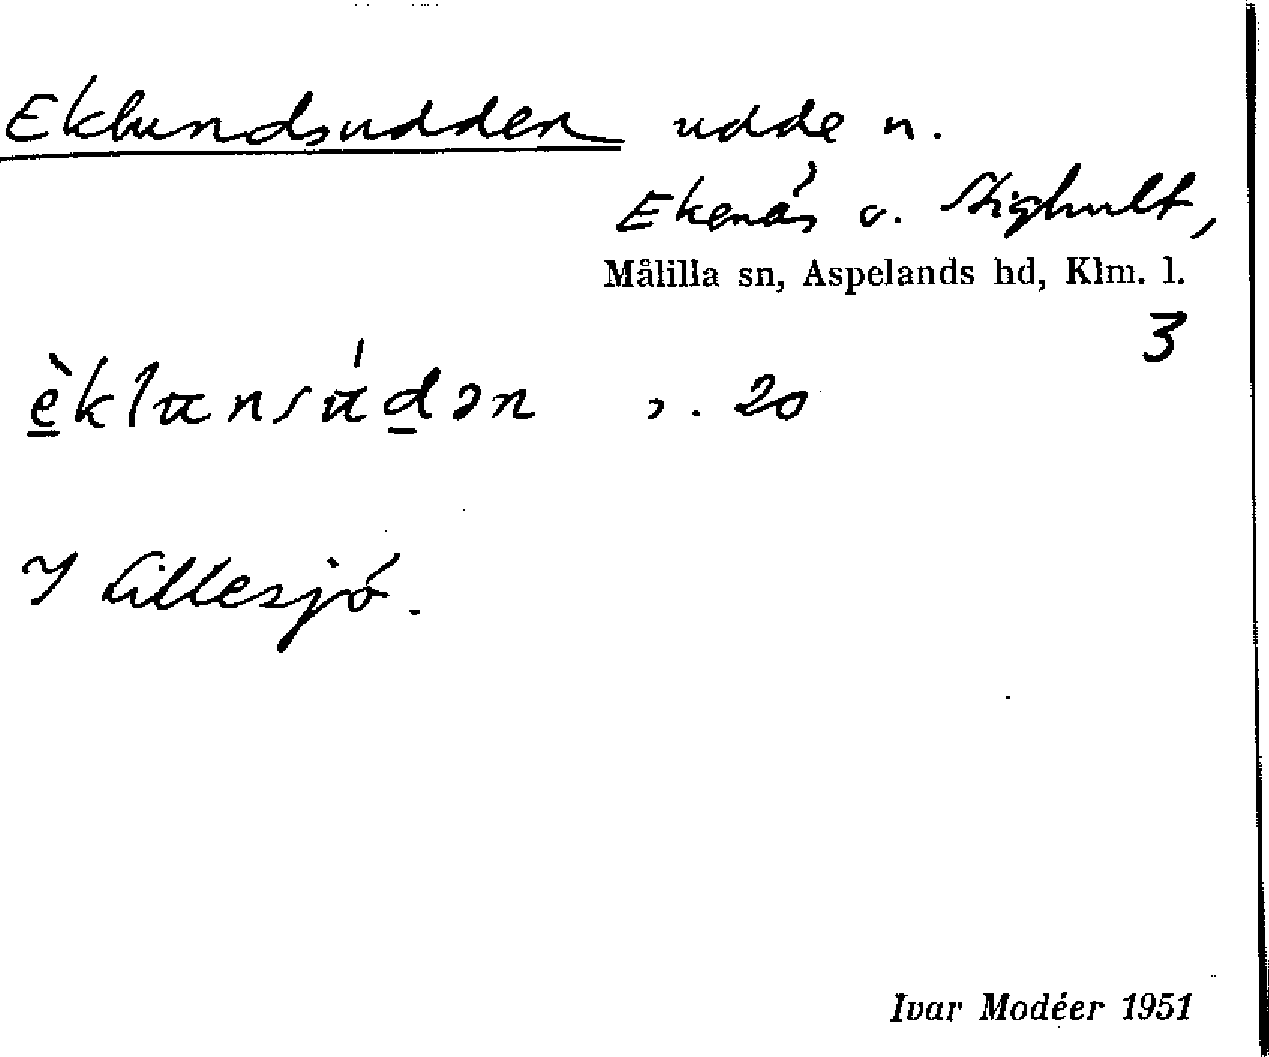 Eklundsudden udde n.
Ekenäs o. Stighult,
Målilla sn, Aspelands hd, Klm. l.
3
èklunsúdən 20
I Lillesjö.
Ivar Modéer 1951